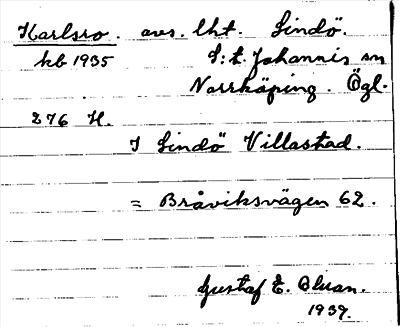 Karlsro. avs. lht. Lindö.
kb 1935 S:t. Johannis sn
Norrköping. Ögl.
276 H.
I Lindö Villastad.
= Bråviksvägen 62.
Gustaf E. Bluan.
1939.